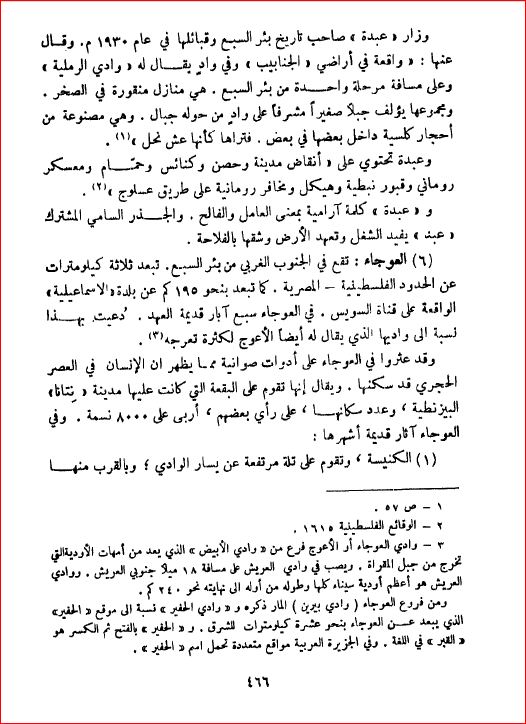 وزار « عبدة » صاحب تاريخ بئر السبع وقبائلها في عام ١٩٣٠ م. وقـال
عنها : « واقعة في أراضي « الجنابيب » وفي وادٍ يقـال له « وادي الرملية »
وعلى مسافة مرحلة واحـدة من بئر السبع . هي منازل منقورة في الصخر .
ومجموعها يؤلف جبلاً صغيراً مشرفاً على وادٍ من حوله جبال . وهي مصنوعة من
أحجار كلسية داخل بعضها في بعض . فتراها كأنها عش نحل » (١) .
وعبدة تحتوي على « أنقاض مدينة وحصن وكنائس وحمّـام ومعسكر
روماني وقبور نبطية وهيكل ومخافر رومانية على طريق عسلوج » (٢) .
و « عبدة » كلمة آرامية بمعنى العامل والفالح . والجـذر السامي المشترك
« عبد » يفيد الشغل وتعهد الأرض وشقها بالفلاحة .
(٦) العوجاء : تقع في الجنوب الغربي من بئر السبع. تبعد ثلاثة كيلومترات
عن الحدود الفلسطينية – المصرية . كما تبعد بنحو ١٩٥ كم عن بلدة «الاسماعيلية»
الواقعة على قناة السويس . في العوجاء سبع آبار قديمة العهد . دُعيت بهـذا
نسبة الى واديها الذي يقال له أيضاً الأعوج لكثرة تعرجه(٣) .
وقد عثروا في العوجاء على أدوات صوانية ممـا يظهر ان الإنسان في العصر
الحجري قد سكنها . ويقال إنها تقوم على البقعة التي كانت عليها مدينة « نِتانا»
البيزنطية ، وعدد سكانهـا ، على رأي بعضهم ، أربى على ٨٠٠٠ نسمة . وفي
العوجاء آثار قديمة أشهرها :
(١) الكنيسة ، وتقوم على تلة مرتفعة عن يسار الوادي ؛ وبالقرب منهـا
١ – ص ٥٧ .
٢ – الوقائع الفلسطينية ١٦١٥ .
٣ – وادي العوجاء أو الأعوج فرع من « وادي الأبيض » الذي يعد من أمهات الأودية التي
تخرج من جبل المقراة . ويصب في وادي العريش على مسافة ١٨ ميلا جنوبي العريش . ووادي
العريش هو أعظم أودية سيناء كلها وطوله من أوله الى نهايته نحو ٢٤٠ كم .
ومن فروع العوجاء ( وادي بيرين ) المار ذكره و « وادي الحفير » نسبة الى موقع «الحفير»
الذي يبعد عـن العوجاء بنحو عشرة كيلومترات للشرق . و « الحفير » بالفتح ثم الكسر هو
« القبر » في اللغة . وفي الجزيرة العربية مواقع متعددة تحمل اسم « الحفير » .
٤٦٦